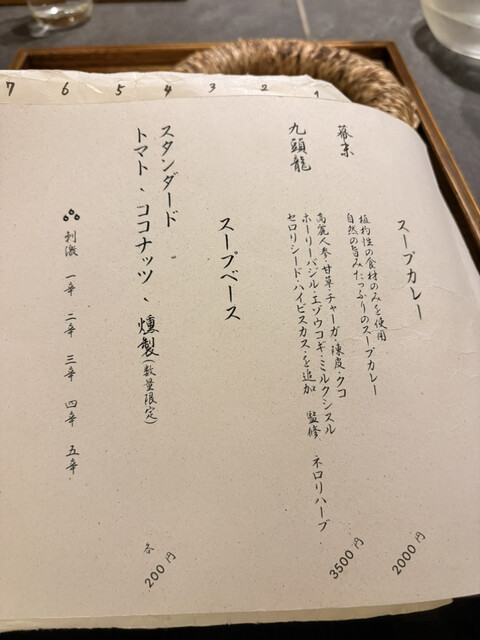 1
2
3
4
5
6
7
スープカレー
2000円
植物性の食材のみを使用
自然の旨みたっぷりのスープカレー
九頭龍
3500円
高麗人参・甘草・チャーガ・陳皮・クコ
ホーリーバジル・エゾウコギ・ミルクシスル
セロリシード・ハイビスカス・を追加 監修 ネロリハーブ
スープベース
スタンダード
トマト、ココナッツ、燻製(数量限定)
各200円
刺激 一辛 二辛 三辛 四辛 五辛